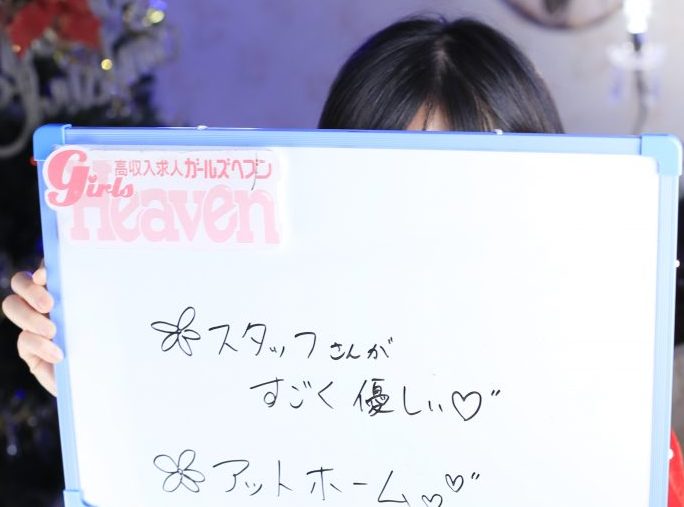 高収入求人ガールズヘブン
Girls
Heaven
スタッフさんが
すごく優しい♡"
アットホーム♡♡"